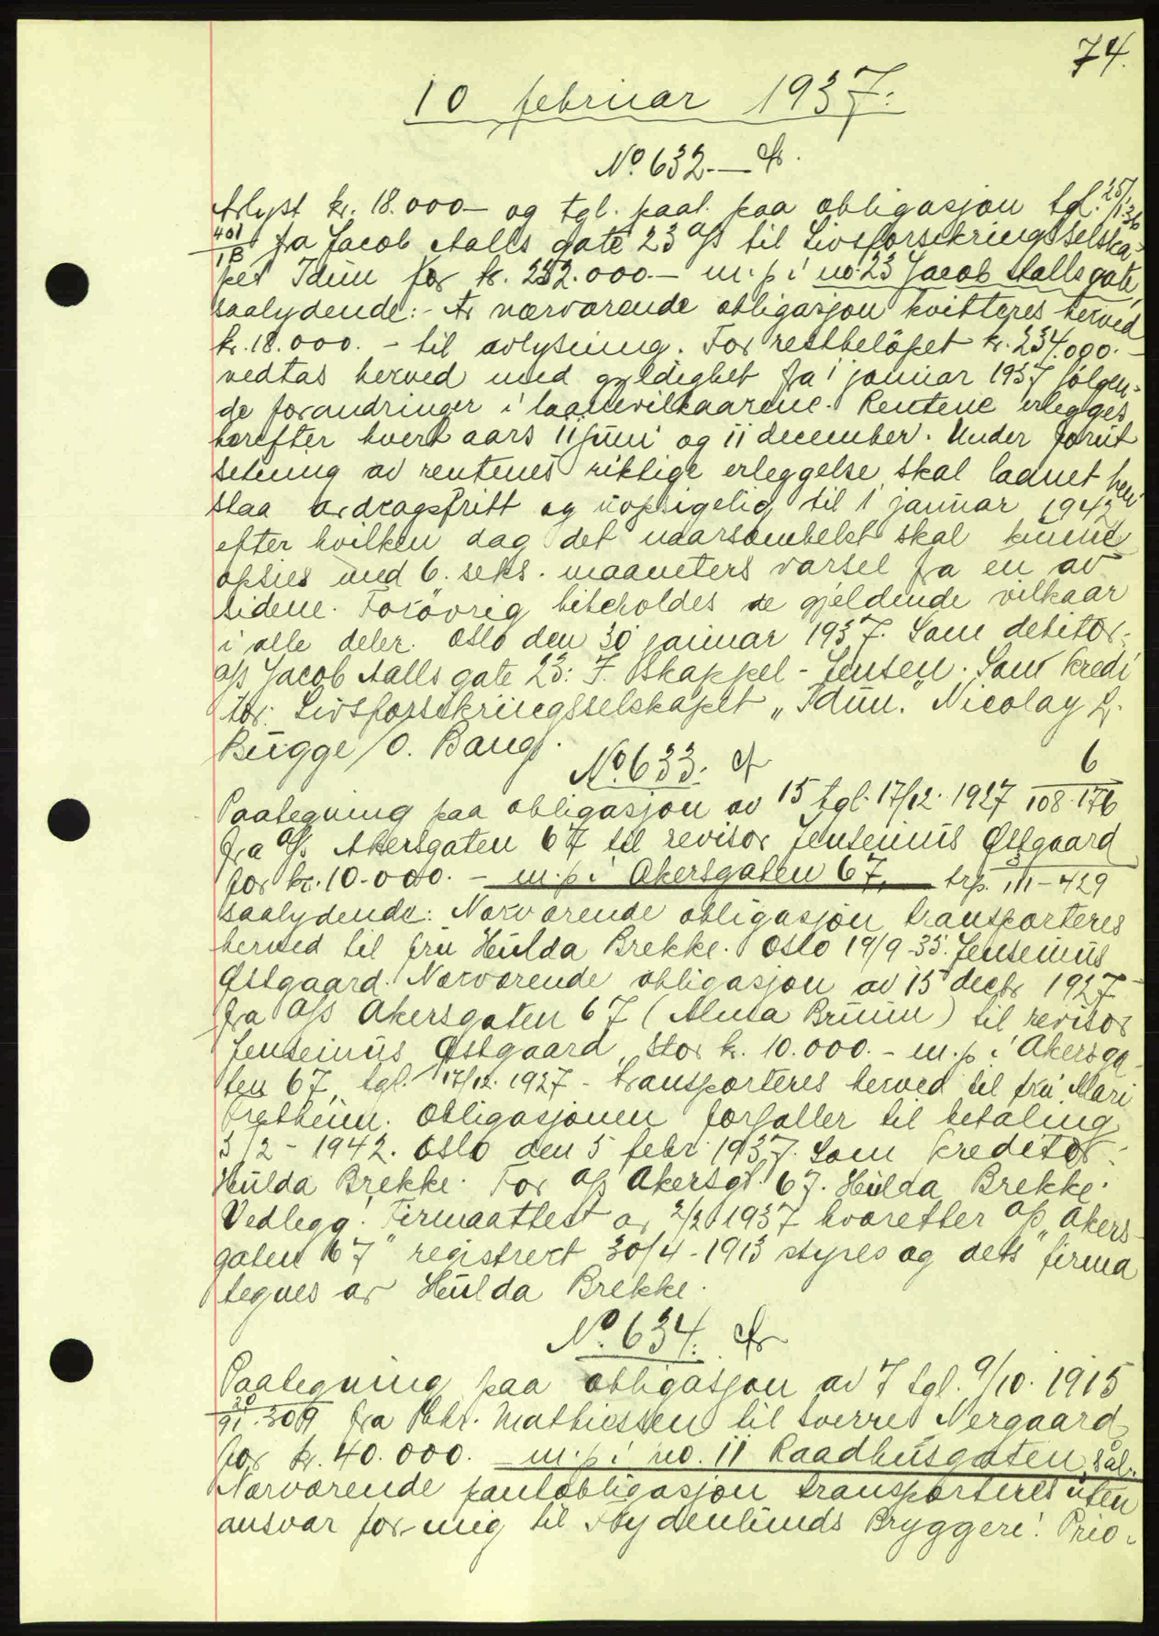 74.
10 februar 1937.
No. 632.—
Avlyst kr. 18.000 – og tgl. paat. paa obligasjon tgl. 25/1.36
401/1B fra Jacob Aalls gate 23 a/s til Livsforsikringsselska-
pet Idun for kr. 252.000.– m. p. i no. 23 Jacob Aalls gate,
saalydende: - Av nærværende obligasjon kvitteres herved
kr. 18.000. – til avlysning. For restbeløpet kr. 234.000. –
vedtas herved med gyldighet fra 1 januar 1937 følgen-
de forandringer i laanevilkaarene. Rentene erlegges
herefter hvert aars 11 juni og 11 december. Under forut
setning av rentenes riktige erleggelse skal laanet hen
staa avdragsfritt og uopsigelig til 1 januar 1942
efter hvilken dag det naarsomhelst skal kunne
opsies med 6. seks. maaneters varsel fra en av
sidene. Forøvrig beholdes de gjeldende vilkaar
i alle deler. Oslo den 30 januar 1937. Som debitor:
a/s Jacob Aalls gate 23: F. Skappel-Jensen. Som kredi
tor: Livsforsikringsselskapet „Idun." Nicolay
Bugge / O. Bang.
No. 633.
Paategning paa obligasjon av 15 tgl. 17/12. 1927 6/108.176
fra a/s Akersgaten 67 til revisor Jenseinius Østgaard
for kr. 10.000. – m. p. i Akersgaten 67, trp. 3/111-429
saalydende: Nærværende obligasjon transporteres
herved til fru Hulda Brekke. Oslo 19/9-35. Jenseinius
Østgaard. Nærværende obligasjon av 15 decbr 1927
fra a/s Akersgaten 67 (Alma Bruun) til revisor
Jenseinius Østgaard, stor kr. 10.000. – m. p. i Akersga-
ten 67, tgl. 17/12. 1927 – transporteres herved til fru Mari
Fretheim. Obligasjonen forfaller til betaling
5/2 – 1942. Oslo den 5 febr 1937. Som kreditor:
Hulda Brekke. For a/s Akersgt. 67. Hulda Brekke.
Vedlegg: Firmaattest av 2/2 1937 hvoretter a/s „Akers-
gaten 67" registrert 30/4-1913 styres og dets firma
tegnes av Hulda Brekke.
No. 634.
Paategning paa obligasjon av 7 tgl. 9/10. 1915
20/91.309 fra Chr. Mathiessen til Sverre Nergaard
for kr. 40.000. – m. p. i no. 11 Raadhusgaten, sål.
Nærværende pantobligasjon transporteres uten
ansvar for mig til Frydenlunds Bryggeri. Prio-